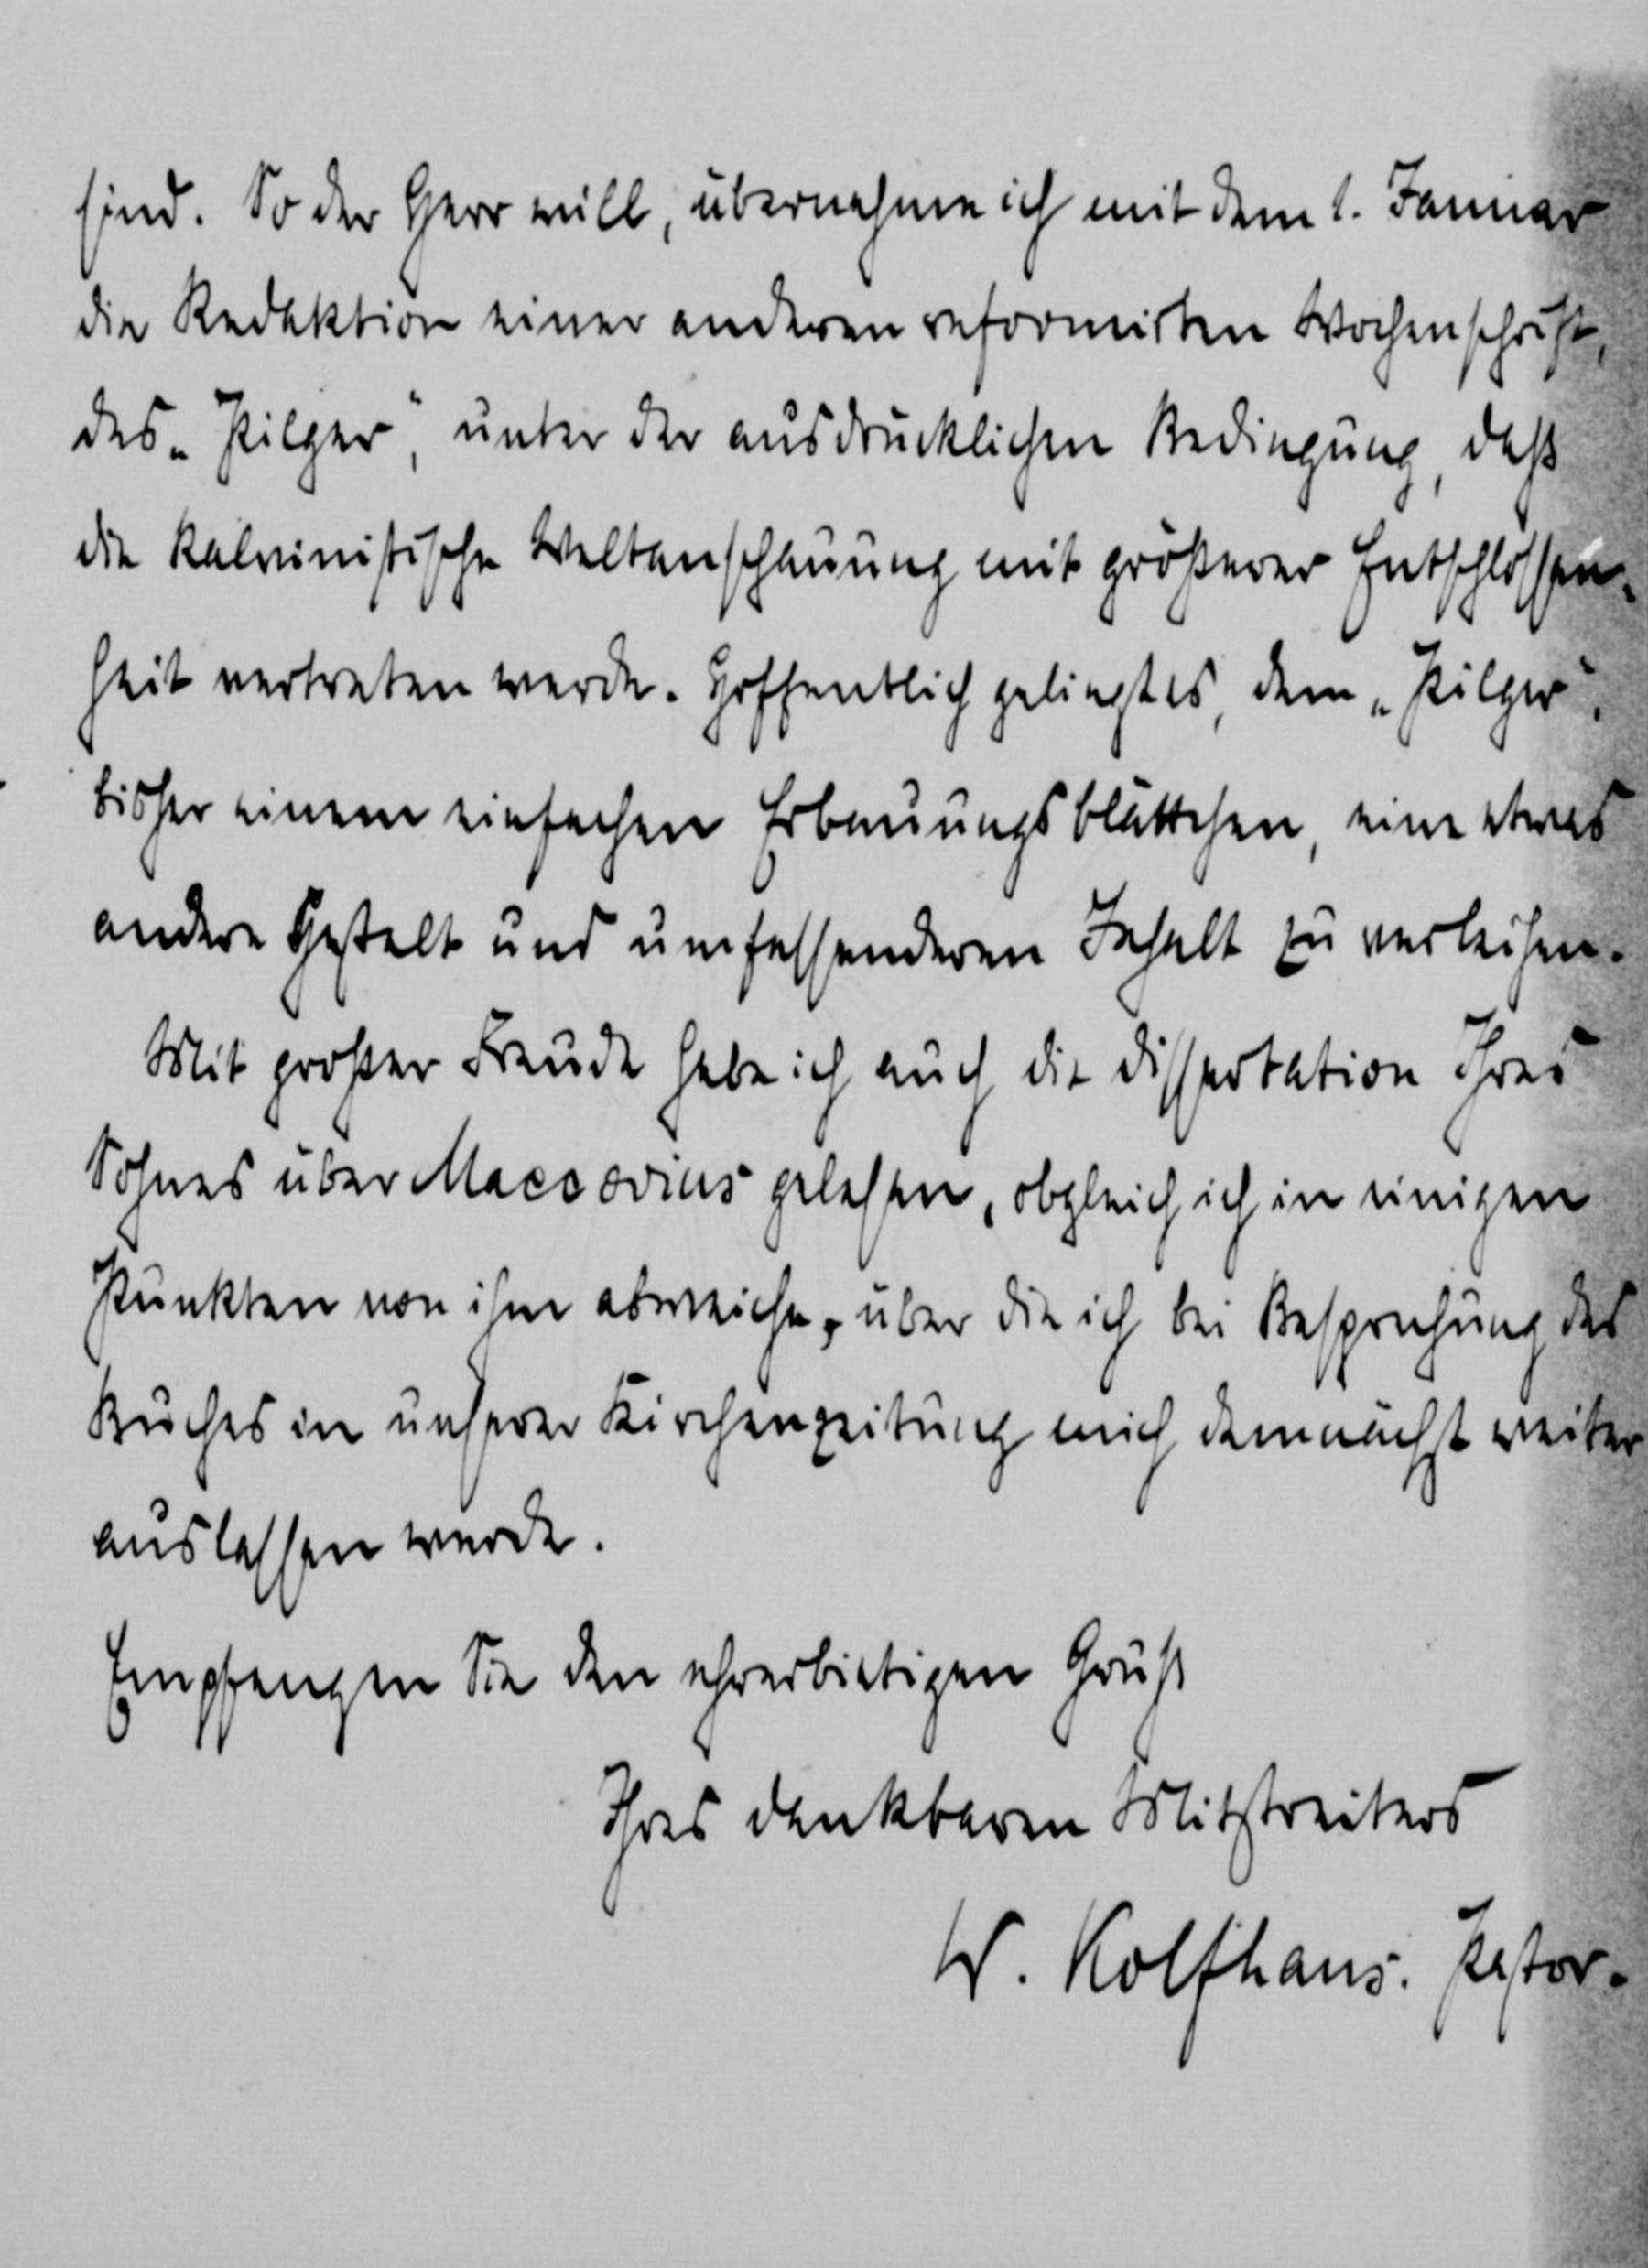 sind. So der Herr will, übernehme ich mit dem 1. Januar
die Redaktion einer anderen reformirten Wochenschrift,
des „Pilger“, unter der ausdrücklichen Bedingung, daß
die kalvinistische Weltanschauung mit größerer Entschlossen-
heit vertreten werde. Hoffentlich gelingt es, dem „Pilger“,
bisher einem einfachen Erbauungsblättchen, eine etwas
andere Gestalt und umfassenderen Inhalt zu verleihen.
Mit großer Freude habe ich auch die Dissertation Ihres
Sohnes über Maccovius gelesen, obgleich ich in einigen
Punkten von ihm abweiche, über die ich bei Besprechung des
Buches in unserer Kirchenzeitung mich demnächst weiter
auslassen werde.
Empfangen Sie den ehrerbietigen Gruß
Ihres dankbaren Mitstreiters
W. Kolfhaus. Pastor.